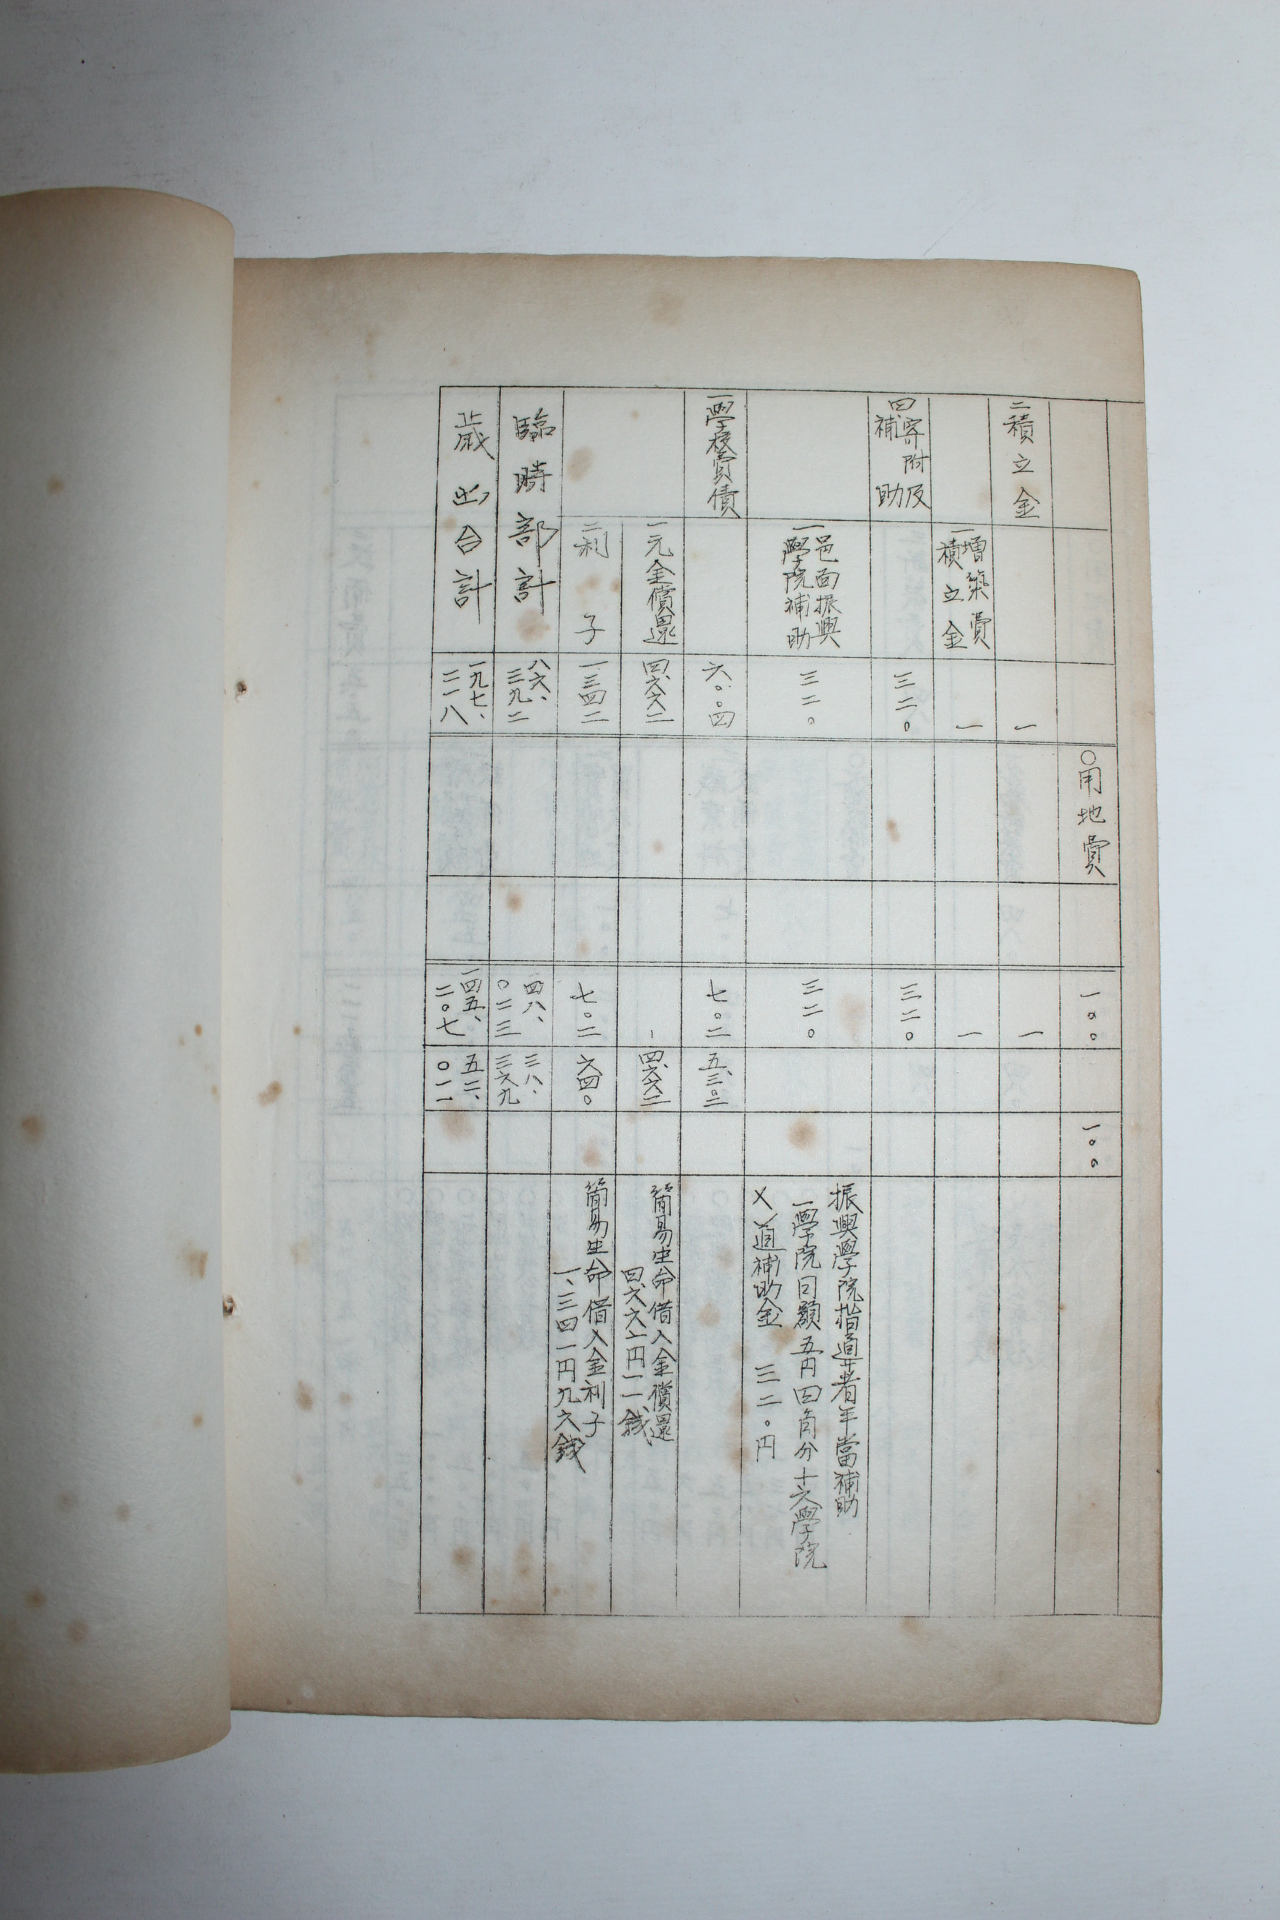 〇用地費
一〇〇
一〇〇
二積立金
一
一
増築費
一積立金
一
一
四、寄附及
補助
三二〇
三二〇
一邑面振興
學院補助
三二〇
三二〇
振興學院指導者年當補助
一學院日額五円四角分十六學院
乂道補助金 三二〇円
一學校費債
六〇〇四
七〇二
五、三〇二
一元金償還
四、六六二
四、六六二
簡易生命借入金償還
四、六六一円一一錢
二利子
一三四二
七〇二
六四〇
簡易生命借入金利子
一、三四一円九六錢
臨時部計
八六、
三九二
四八、
〇二三
三八、
三六九
歳出合計
一九七、
二一八
一四五、
二〇七
五二、
〇一一